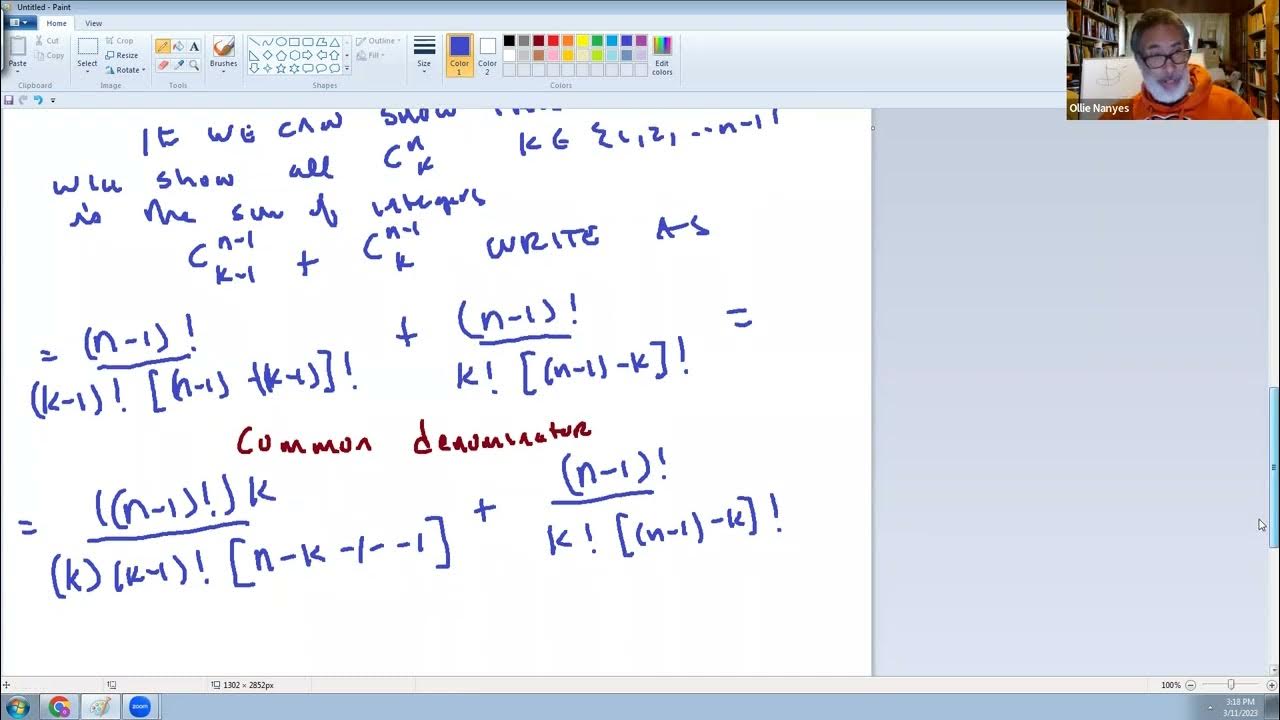 Untitled - Paint
Home View
Paste Cut Copy Select Crop Resize Rotate A Brushes Outline Fill Size Color 1 Color 2 Edit colors
Clipboard Image Tools Shapes Colors
Ollie Nanyes
If we can show
will show all C^n_k k ∈ {1,2, ..n-1}
is the sum of integers
C^{n-1}_{k-1} + C^{n-1}_k WRITE AS
= (n-1)! / (k-1)! [(n-1) -(k-1)]! + (n-1)! / k! [(n-1)-k]! =
Common denominator
= ((n-1)!)k / (k)(k-1)! [n-k-1--1] + (n-1)! / k! [(n-1)-k]!
1302 × 2852px 100%
zoom
3:18 PM
3/11/2023